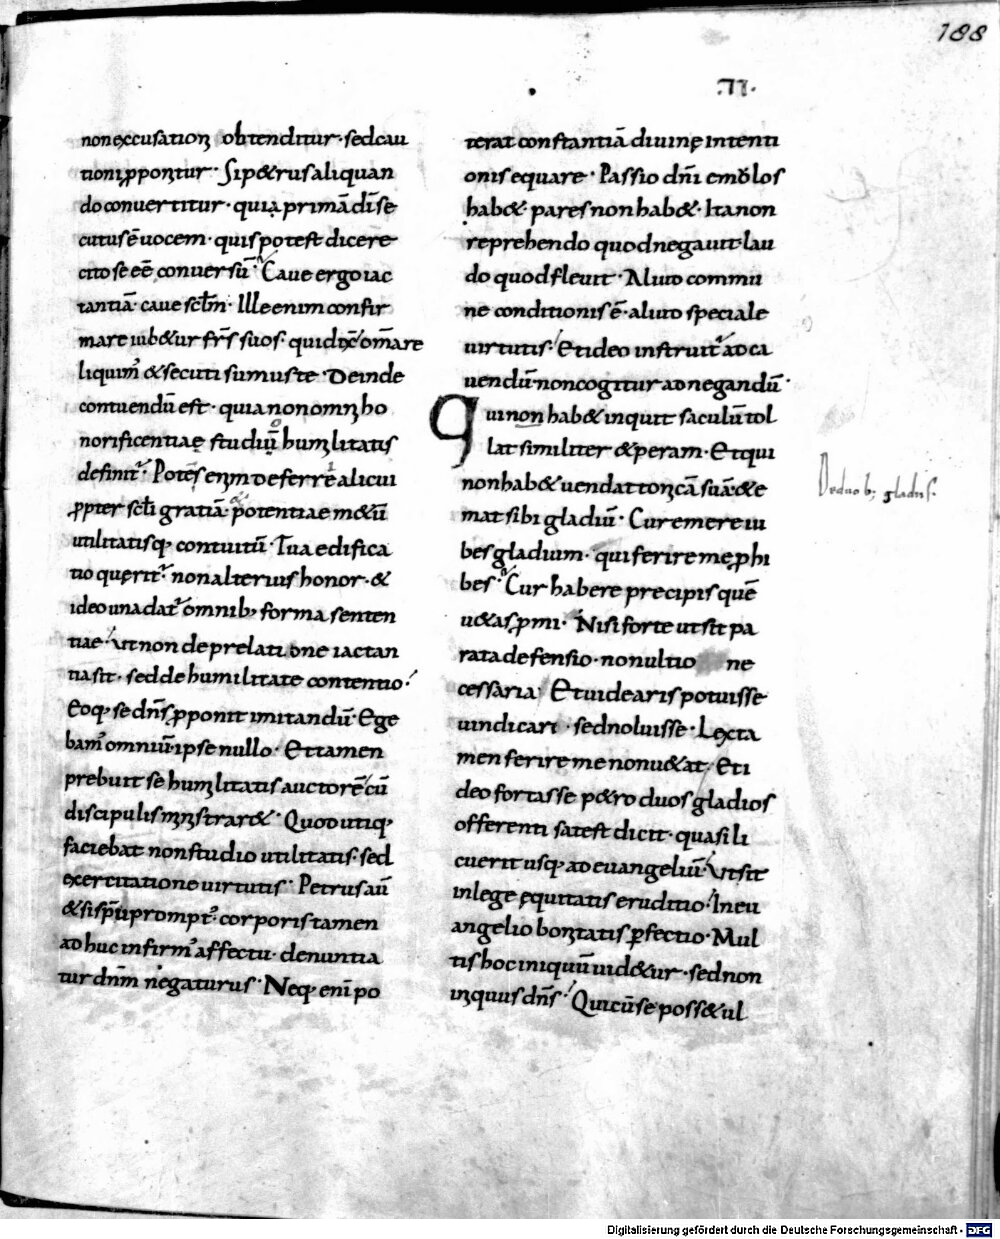 188
.VI.
non excusationi obtenditur · sed cau
tioni ꝓponitur · Si p&rus aliquan
do conuertitur · quia primā dñi se
cutus ē uocem · quis potest dicere
cito se eē conuersū · Caue ergo iac
tantiā · caue sc̄lm · Ille enim confir
mare iub&ur fr̄s suos · qui dix̄ om̄a re
liquim᾽ & secuti sumus te · Deinde
contuendū est · quia non omnis ho
norificentiae studiū humilitatis
definit᾽ · Potes enim deferre alicui
ꝓpter sc̄li gratiā · potentiae m&ū
utilitatisq; contuitū · Tua edifica
tio querit᾽ · non alterius honor · &
ideo una dat᾽ omnib; forma senten
tiae · Vt non de prelatione iactan
tia sit · sed de humilitate contentio ·
Eoq; se dn̄s ꝓponit imitandū · Ege
bam᾽ omniū · ipse nullo · Et tamen
prebuit se humilitatis auctorē · cū
discipulis ministrar& · Quod utiq;
faciebat non studio utilitatis · sed
exercitatione uirtutis · Petrus aū
& si sp̄u prompt᾽ · corporis tamen
ad huc infirm᾽ affectu · denuntia
tur dn̄m negaturus · Neq; eni po
terat constantiā diuinę intenti
onis equare · Passio dn̄i emulos
hab& · pares non hab& · Ita non
reprehendo quod negauit · lau
do quod fleuit · Aliud commu
ne conditionis ē · aliud speciale
uirtutis · Et ideo instruit᾽ ad ca
uendū · non cogitur ad negandū ·
Qui non hab& inquit saculū tol
lat similiter & peram · Et qui
non hab& uendat tonicā suā · & e
mat sibi gladiū · Cur emere iu
bes gladium · qui ferire me ꝓhi
bes · Cur habere precipis quē
u&as ꝓmi · Nisi forte ut sit pa
rata defensio · non ultio ne
cessaria · Et uidearis potuisse
uindicari · sed noluisse · Lex ta
men ferire me non u&at · Et i
deo fortasse p&ro duos gladios
offerenti sat est dicit · quasi li
cuerit usq; ad euangeliū · Vt sit
in lege ęquitatis eruditio · In eu
angelio bonitatis ꝑfectio · Mul
tis hoc iniquū uid&ur · sed non
iniquus dn̄s · Qui cū se poss& ul
De duob; gladiis.
Digitalisierung gefördert durch die Deutsche Forschungsgemeinschaft - DFG